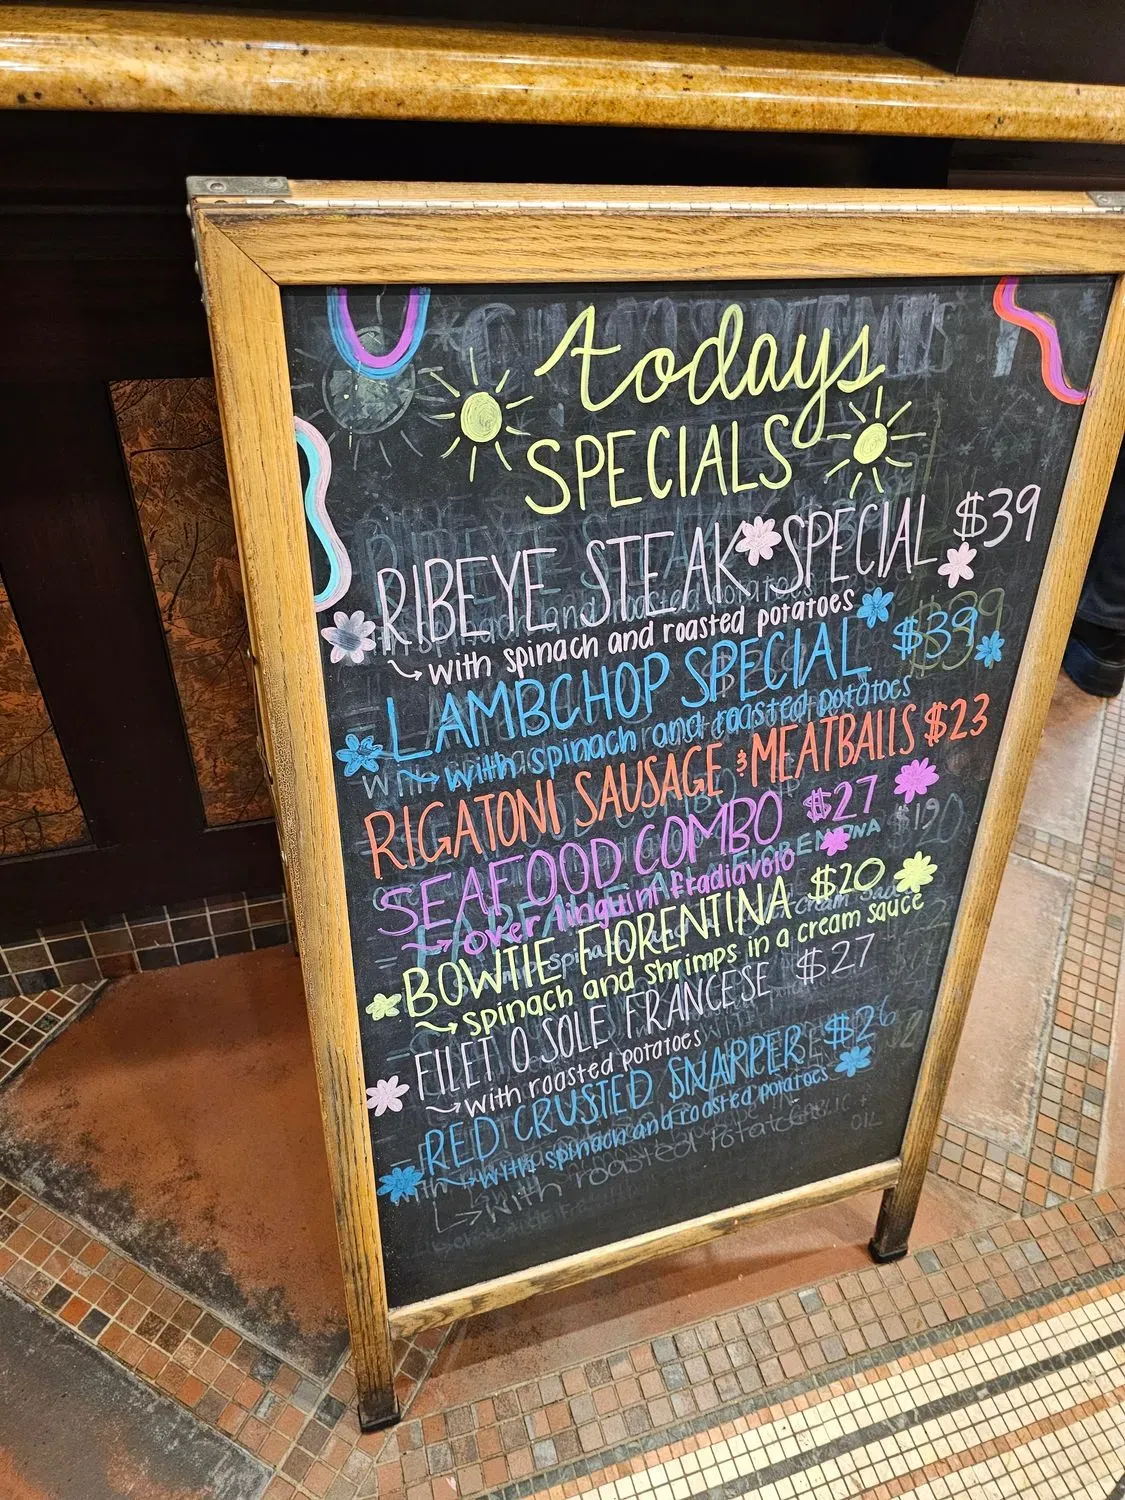 todays
SPECIALS
RIBEYE STEAK SPECIAL $39
with spinach and roasted potatoes
LAMBCHOP SPECIAL $39
with spinach and roasted potatoes
RIGATONI SAUSAGE & MEATBALLS $23
SEAFOOD COMBO $27
over linguini fradiavolo
BOWTIE FIORENTINA $20
spinach and shrimps in a cream sauce
FILET O SOLE FRANCESE $27
with roasted potatoes
RED CRUSTED SNAPPER $26
with spinach and roasted potatoes
with roasted potatoes
OIL